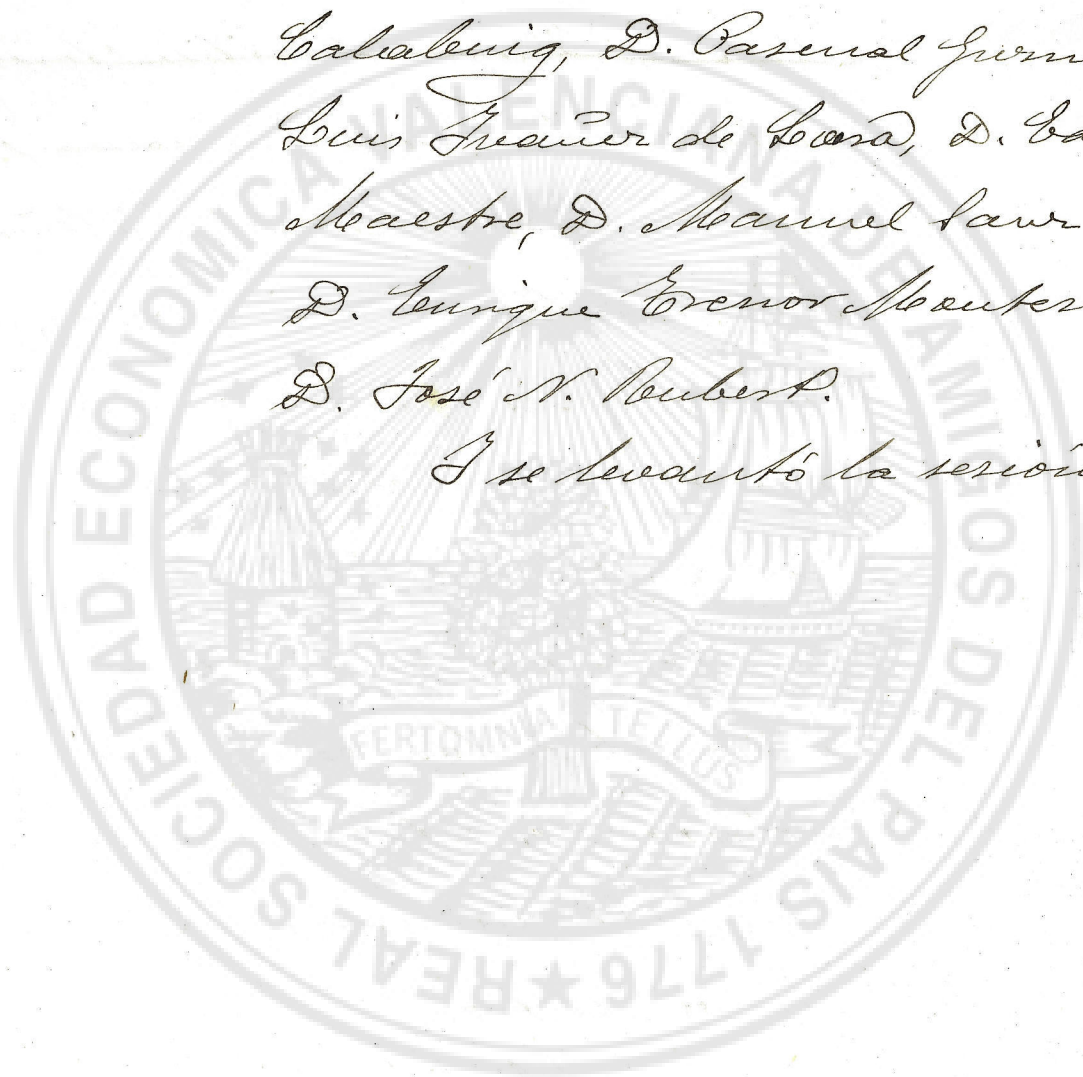 Calabuig, D. Pascual
Luis Ibáñez de Lara, D.
Maestre, D. Manuel
D. Enrique Trenor Monter
D. José N. Roubert.
Y se levantó la sesión
REAL SOCIEDAD ECONOMICA VALENCIANA DE AMIGOS DEL PAIS 1776 ★
FERT OMNIA TELLUS